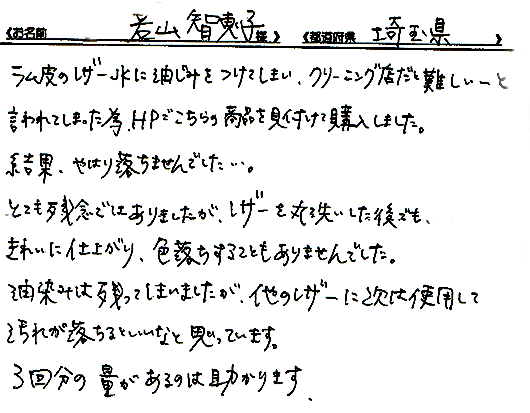 《お名前 岩山 智恵子 様》 《都道府県 埼玉県 》
ラム皮のレザーJKに油じみをつけてしまい、クリーニング店だと難しいーと
言われてしまった為、HPでこちらの商品を見付けて購入しました。
結果、やはり落ちませんでした…。
とても残念ではありましたが、レザーを丸洗いした後でも、
きれいに仕上がり、色落ちすることもありませんでした。
油染みは残ってしまいましたが、他のレザーに次は使用して
汚れが落ちるといいなと思っています。
3回分の量があるのは助かります。